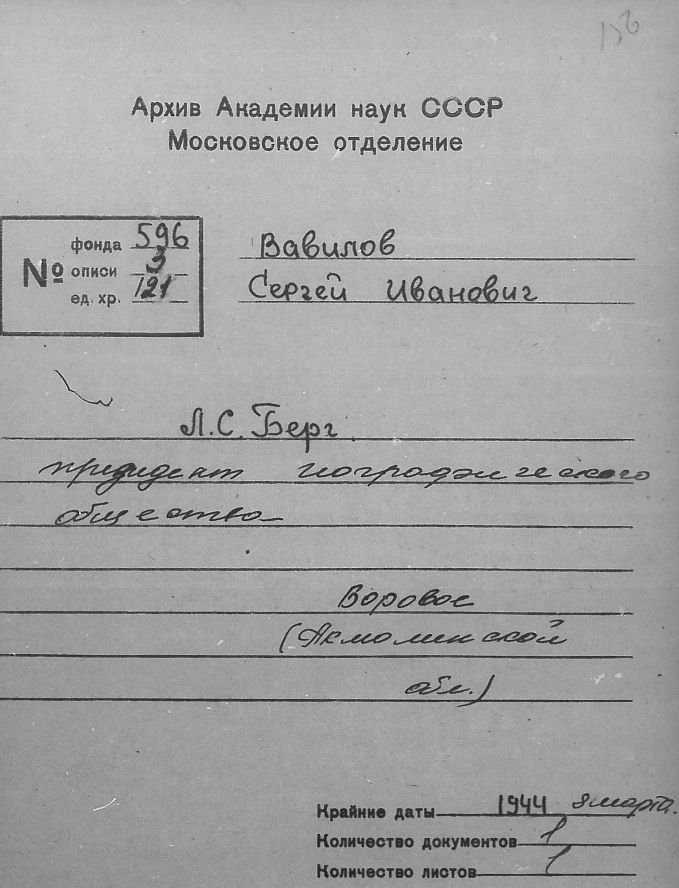 Архив Академии наук СССР
Московское отделение
№
фонда 596
описи 3
ед. хр. 121
Вавилов
Сергей Иванович
Л.С. Берг.
президент географического
общества
Боровое
(Акмолинской
обл.)
Крайние даты 1944 8 марта.
Количество документов 1
Количество листов 1